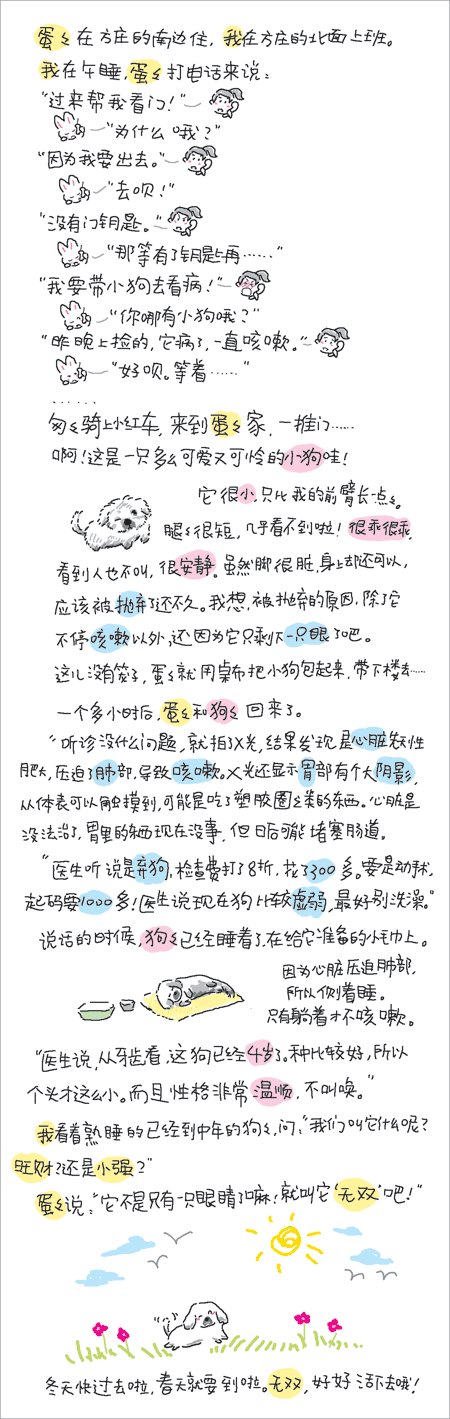 蛋蛋在方庄的南边住，我在方庄的北面上班。
我在午睡，蛋蛋打电话来说：
“过来帮我看门！”
“为什么哦？”
“因为我要出去。”
“去呗！”
“没有门钥匙。”
“那等有了钥匙再……”
“我要带小狗去看病！”
“你哪有小狗哦？”
“昨晚上捡的，它病了，一直咳嗽。”
“好呗。等着……”
……
匆匆骑上小红车，来到蛋蛋家，一推门……
啊！这是一只多么可爱又可怜的小狗哇！
它很小，只比我的前臂长一点点。
腿腿很短，几乎看不到啦！很乖很乖，
看到人也不叫，很安静。虽然脚很脏，身上却还可以，
应该被抛弃了还不久。我想，被抛弃的原因，除了它
不停咳嗽以外，还因为它只剩下一只眼了吧。
这儿没有笼子，蛋蛋就用桌布把小狗包起来，带下楼去……
一个多小时后，蛋蛋和狗狗回来了。
“听诊没什么问题，就拍了X光，结果发现是心脏先天性
肥大，压迫了肺部，导致咳嗽。X光还显示胃部有个大阴影，
从体表可以触摸到，可能是吃了塑胶圈之类的东西。心脏是
没法治了，胃里的东西现在没事，但日后可能堵塞肠道。
“医生听说是弃狗，检查费打了8折，花了300多。要是动手术，
起码要1000多！医生说现在狗比较虚弱，最好别洗澡。”
说话的时候，狗狗已经睡着了，在给它准备的小毛巾上。
因为心脏压迫肺部，
所以侧着睡。
只有躺着才不咳嗽。
“医生说，从牙齿看，这狗已经4岁了。种比较好，所以
个头才这么小。而且性格非常温顺，不叫唤。”
我看着熟睡的已经到中年的狗狗，问：“我们叫它什么呢？
旺财？还是小强？”
蛋蛋说：“它不是只有一只眼睛了嘛！就叫它‘无双’吧！”
冬天快过去啦，春天就要到啦。无双，好好活下去哦！